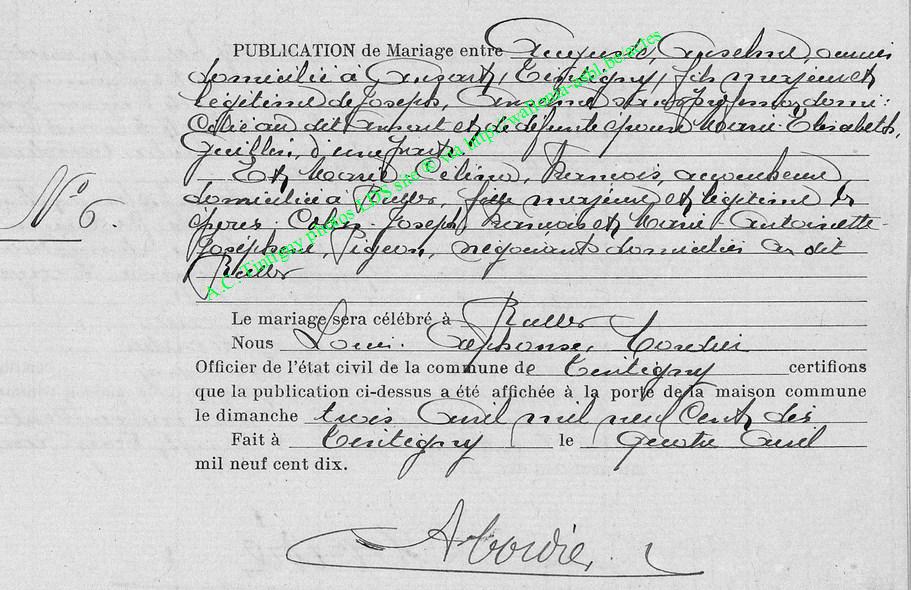 PUBLICATION de Mariage entre Auguste, Anselme, ouvrier
domicilié à Ansart, Tintigny, fils majeur et
légitime de Joseph, Anselme sans profession domi-
cilié au dit Ansart et de défunte épouse Marie-Elisabeth,
d'une part
Et Marie Célina, François,
domiciliée à Rulles, fille majeure et légitime des
époux Colin-Joseph, François et Marie-Antoinette-
Joséphine, Pigeon, négociants domiciliés au dit
Rulles
N° 6.
Le mariage sera célébré à Rulles
Nous Louis-Alphonse, Cordier
Officier de l'état civil de la commune de Tintigny certifions
que la publication ci-dessus a été affichée à la porte de la maison commune
le dimanche trois avril mil neuf cent dix
Fait à Tintigny le quatre avril
mil neuf cent dix.
A Cordier
A.C. Tintigny photos LDS site © via http://wallonia-asbl.be/actes